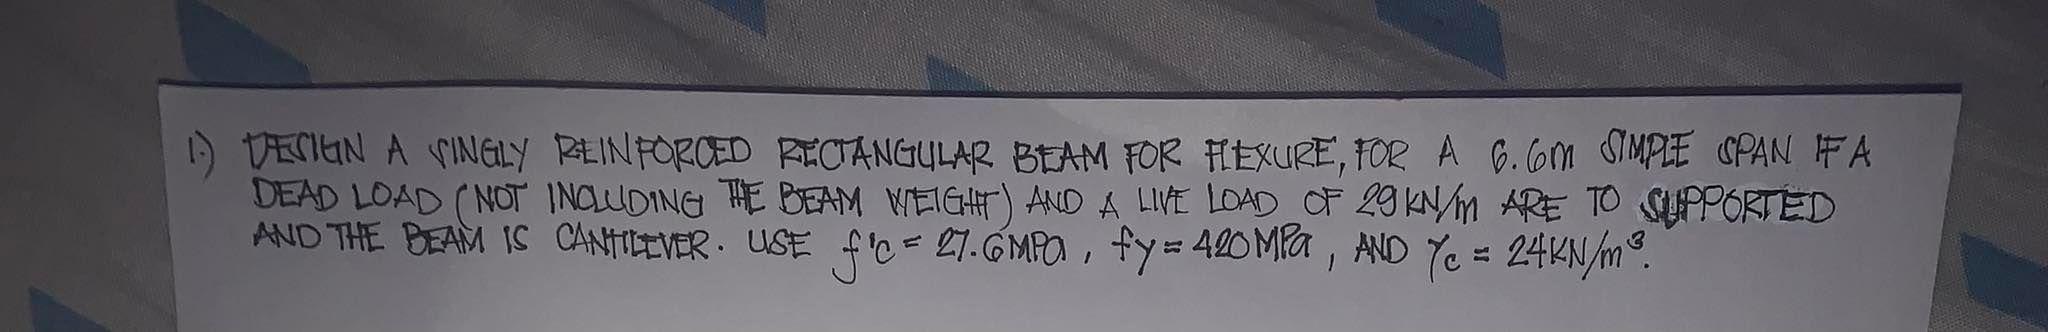 1.) DESIGN A SINGLY REINFORCED RECTANGULAR BEAM FOR FLEXURE, FOR A 6.6m SIMPLE SPAN IF A
DEAD LOAD (NOT INCLUDING THE BEAM WEIGHT) AND A LIVE LOAD OF 29 KN/m ARE TO SUPPORTED
AND THE BEAM IS CANTILEVER. USE f'c = 27.6MPa, fy = 420 MPa, AND γc = 24KN/m³.